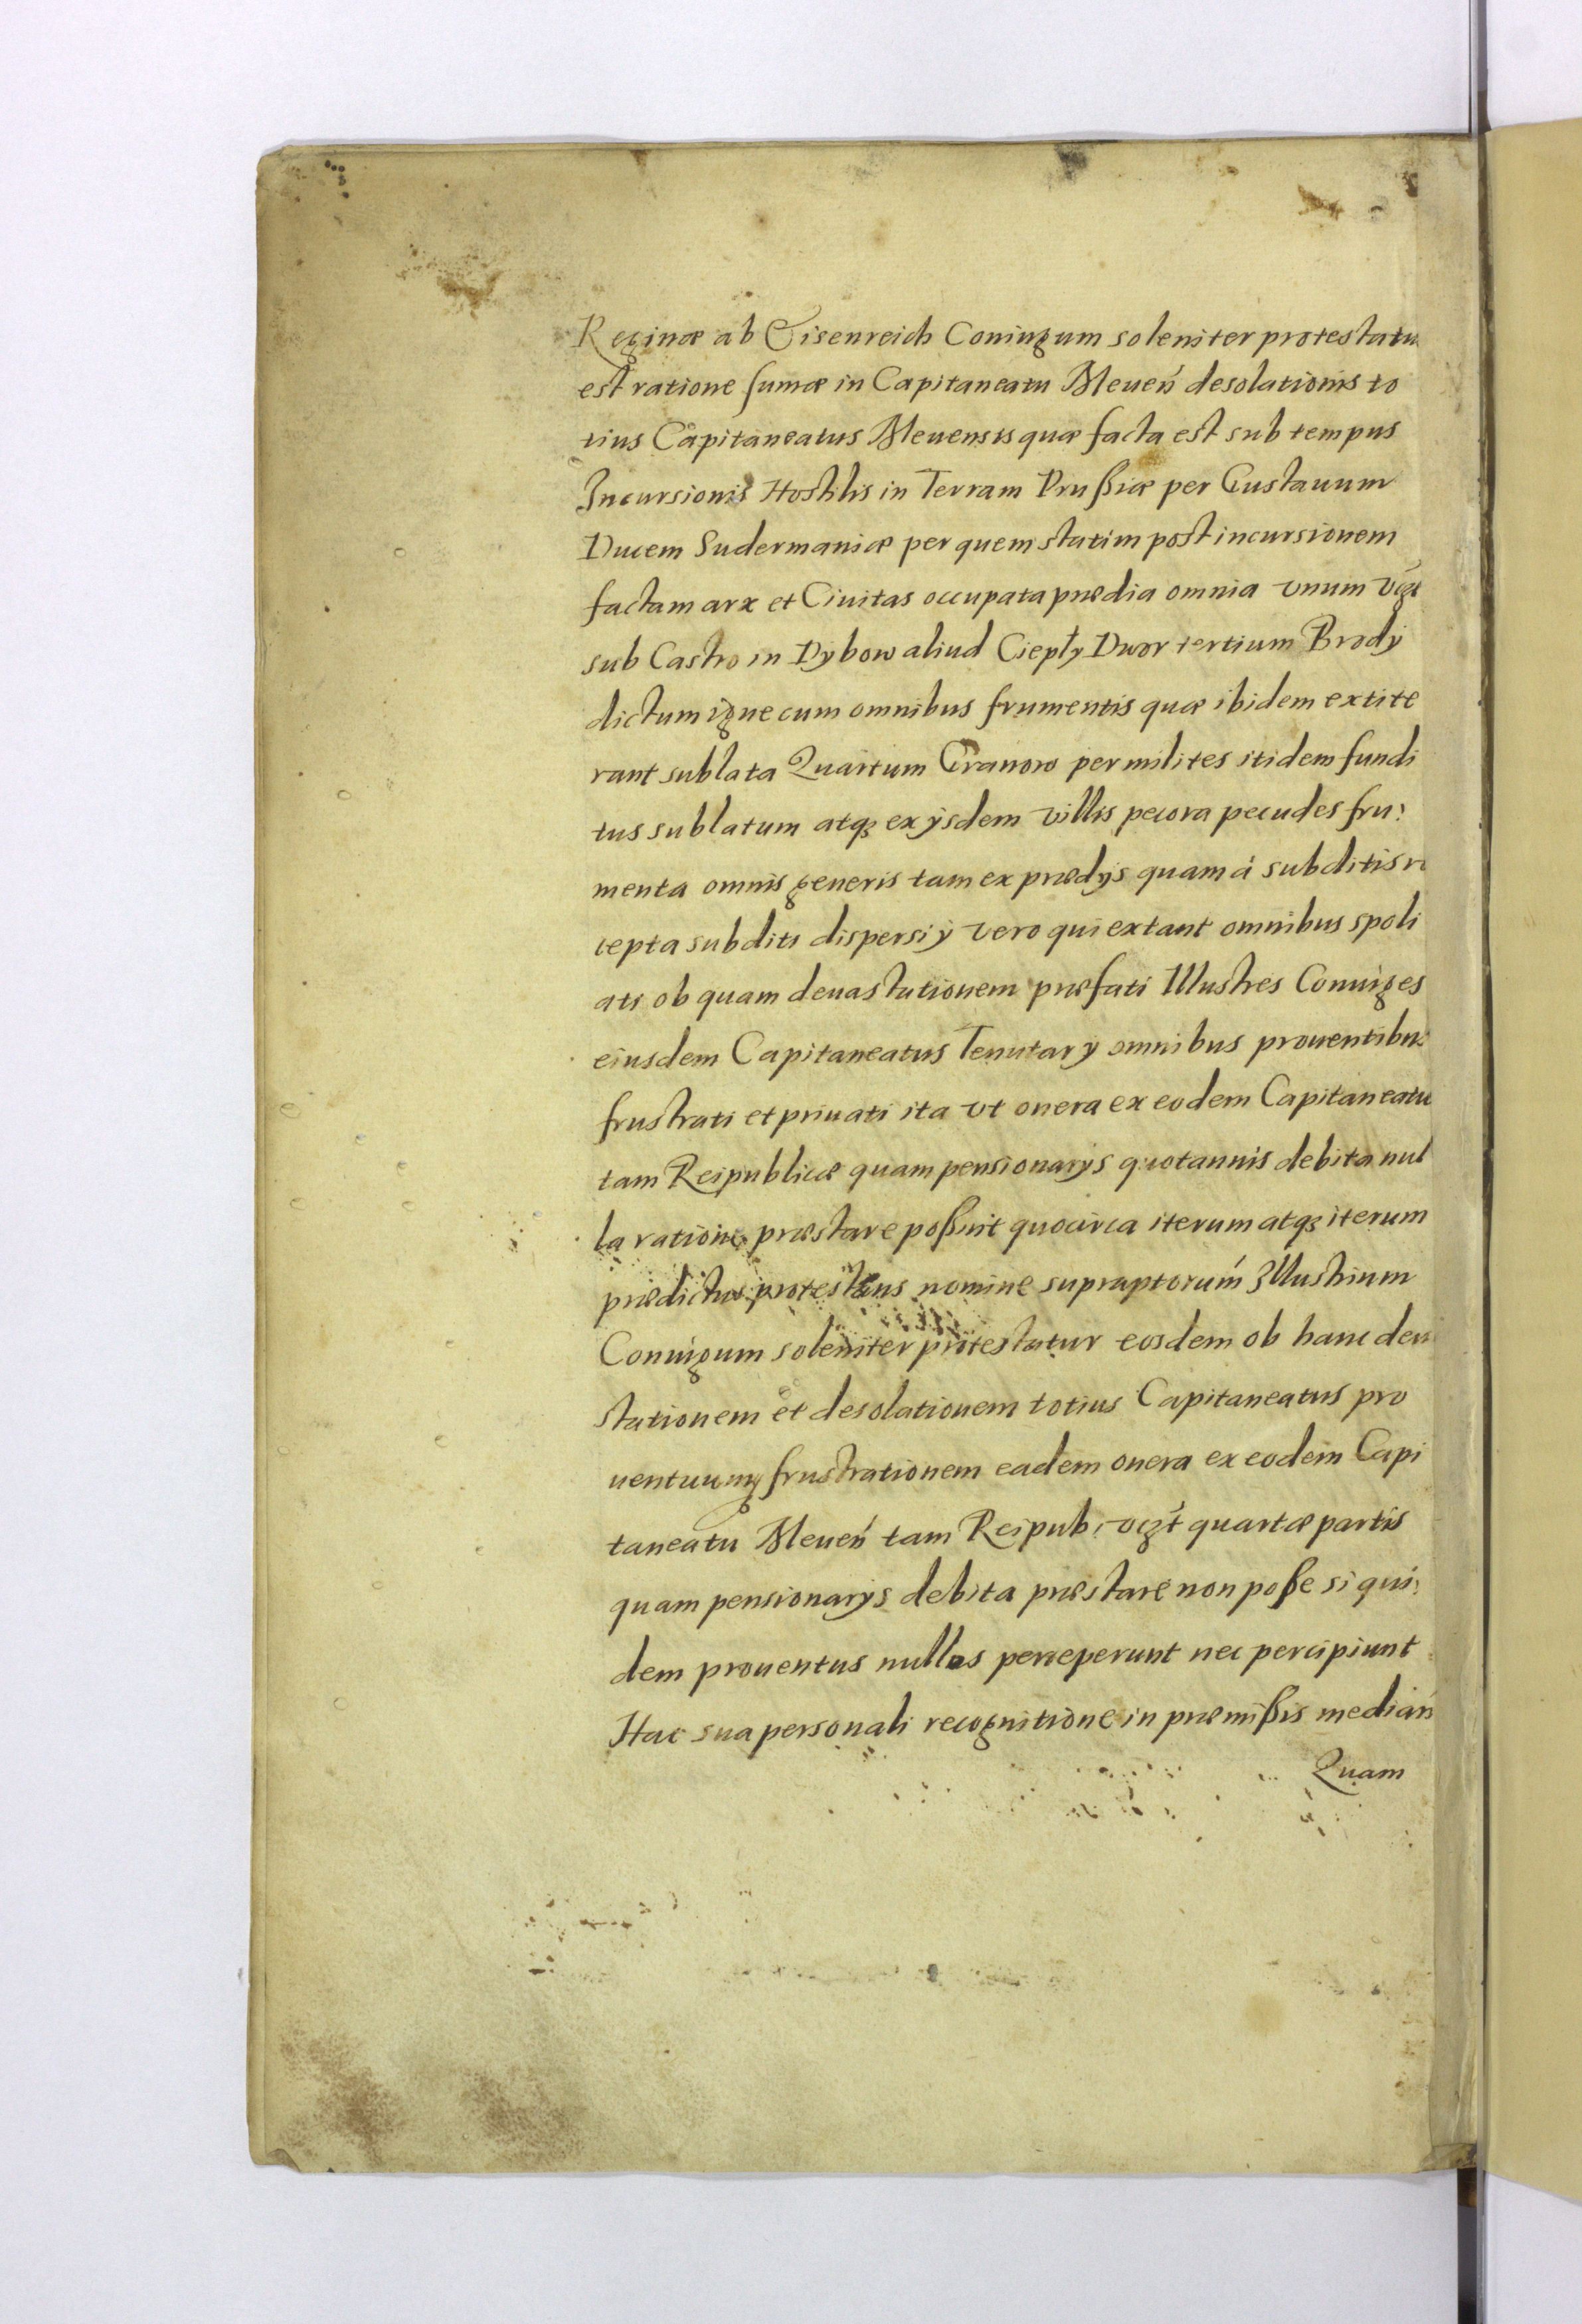 Reginæ ab Eisenreich Coniugum soleniter protestatu
est ratione sumæ in Capitaneatu Meueń desolationis to
tius Capitaneatus Meuensis quæ facta est sub tempus
Incursionis Hostilis in Terram Prußiæ per Gustauum
Ducem Sudermaniæ per quem statim post incursionem
factam arx et Ciuitas occupata prædia omnia vnum vĝt
sub Castro in Dybow aliud Ciepły Dwor tertium Brody
dictum igne cum omnibus frumentis quæ ibidem extite
rant sublata Quartum Gronow per milites itidem fundi
tus sublatum atqꝫ ex ijsdem villis pecora pecudes fru:
menta omnis generis tam ex prædijs quam á subditis re
cepta subditi dispersi ij vero qui extant omnibus spoli
ati ob quam deuastationem præfati Illustres Coniuges
eiusdem Capitaneatus Tenutarij omnibus prouentibus
frustrati et priuati ita vt onera ex eodem Capitaneatu
tam Reipublicæ quam pensionarijs quotannis debita nul
la ratione præstare poßint quocirca iterum atqꝫ iterum
prædictus protestans nomine supraptorum Illustrium
Coniugum soleniter protestatur eosdem ob hanc deua
stationem et desolationem totius Capitaneatus pro
uentuumqꝫ frustrationem eadem onera ex eodem Capi
taneatu Meueń tam Reipub: vĝzt quartæ partis
quam pensionarijs debita præstare non poße si qui:
dem prouentus nullos perceperunt nec percipiunt
Hac sua personali recognitione in præmißis medianń
Quam